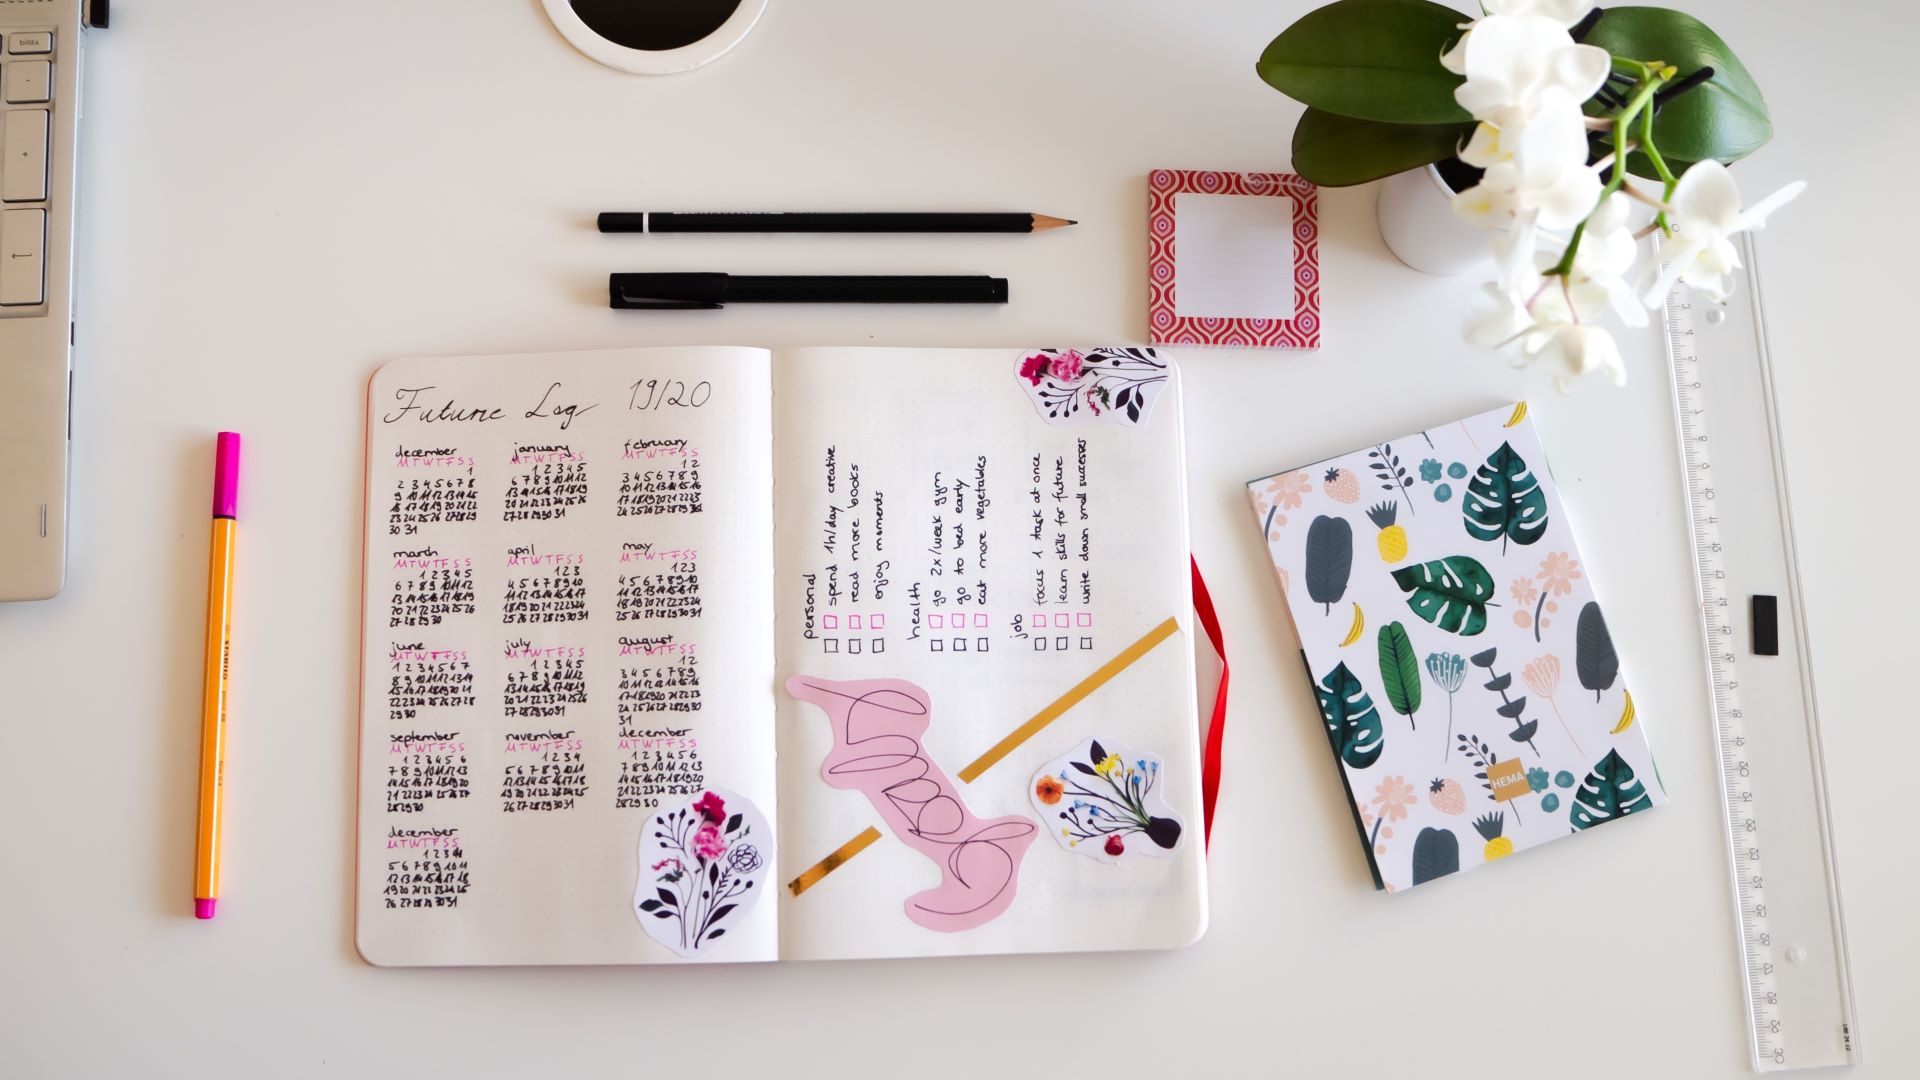 Future Log 19/20
december
M T W T F S S
1
2 3 4 5 6 7 8
9 10 11 12 13 14 15
16 17 18 19 20 21 22
23 24 25 26 27 28 29
30 31
january
M T W T F S S
1 2 3 4 5
6 7 8 9 10 11 12
13 14 15 16 17 18 19
20 21 22 23 24 25 26
27 28 29 30 31
february
M T W T F S S
1 2
3 4 5 6 7 8 9
10 11 12 13 14 15 16
17 18 19 20 21 22 23
24 25 26 27 28 29 30
march
M T W T F S S
1 2 3 4 5
6 7 8 9 10 11 12
13 14 15 16 17 18 19
20 21 22 23 24 25 26
27 28 29 30
april
M T W T F S S
1 2 3
4 5 6 7 8 9 10
11 12 13 14 15 16 17
18 19 20 21 22 23 24
25 26 27 28 29 30 31
may
M T W T F S S
1 2 3
4 5 6 7 8 9 10
11 12 13 14 15 16 17
18 19 20 21 22 23 24
25 26 27 28 29 30 31
june
M T W T F S S
1 2 3 4 5 6 7
8 9 10 11 12 13 14
15 16 17 18 19 20 21
22 23 24 25 26 27 28
29 30
july
M T W T F S S
1 2 3 4 5
6 7 8 9 10 11 12
13 14 15 16 17 18 19
20 21 22 23 24 25 26
27 28 29 30 31
august
M T W T F S S
1 2
3 4 5 6 7 8 9
10 11 12 13 14 15 16
17 18 19 20 21 22 23
24 25 26 27 28 29 30
31
september
M T W T F S S
1 2 3 4 5 6
7 8 9 10 11 12 13
14 15 16 17 18 19 20
21 22 23 24 25 26 27
28 29 30
november
M T W T F S S
1 2 3 4
5 6 7 8 9 10 11
12 13 14 15 16 17 18
19 20 21 22 23 24 25
26 27 28 29 30 31
december
M T W T F S S
1 2 3 4 5 6
7 8 9 10 11 12 13
14 15 16 17 18 19 20
21 22 23 24 25 26 27
28 29 30
december
M T W T F S S
1 2 3 4
5 6 7 8 9 10 11
12 13 14 15 16 17 18
19 20 21 22 23 24 25
26 27 28 29 30 31
personal
spend 1h/day creative
read more books
enjoy moments
health
go 2x/week gym
go to bed early
eat more vegetables
job
focus 1 task at once
learn skills for future
write down small successes
HEMA
STABILO
bild